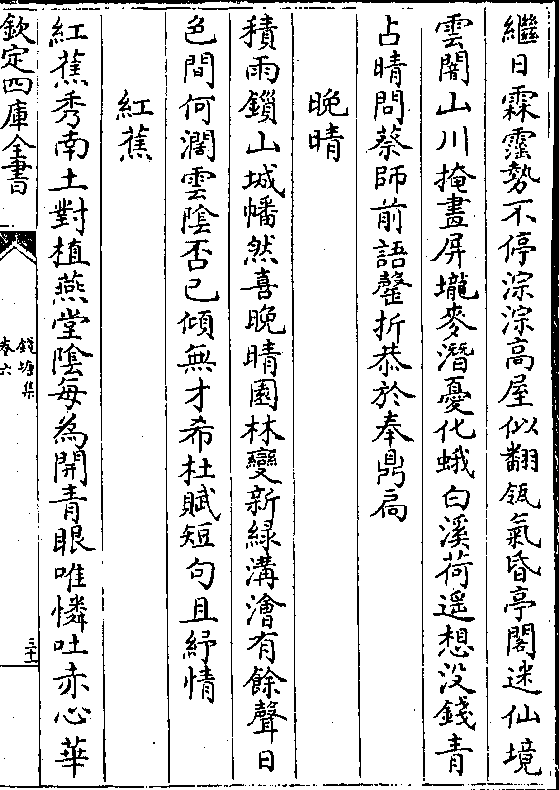 繼日霖霪勢不停淙淙高屋似翻瓴氣昏亭閣迷仙境
雲闇山川掩畫屏壠麥潛憂化蛾白溪荷遥想没錢青
占晴問蔡師前語罄折恭於奉鼎扃
晚晴
積雨鎖山城幡然喜晚晴園林變新緑溝澮有餘聲日
色間何濶雲陰否已傾無才希杜賦短句且紓情
紅蕉
紅蕉秀南土對植燕堂隂每為開青眼唯憐吐赤心華
欽定四庫全書
錢塘集
卷六
三十二